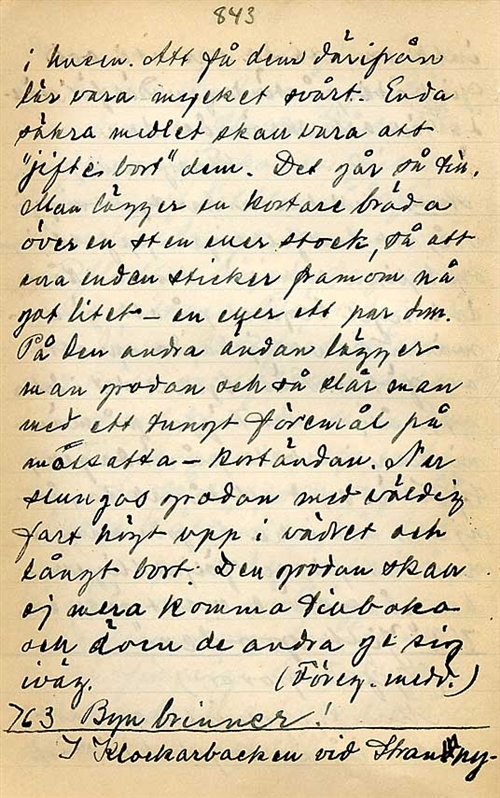 843
i husen. Att få dem därifrån
lär vara mycket svårt. Enda
säkra medlet skall vara att
"jifte bort" dem. Det går så till.
Man lägger en kortare bräda
över en sten eller stock, så att
ena enden sticker framom nå
got litet – en eller ett par dm.
På den andra ändan lägger
man grodan och så slår man
med ett tungt föremål på
motsatta – kortändan. Nu
slungas grodan med väldig
fart högt upp i vädret och
långt bort. Den grodan skall
ej mera komma tillbaka
och även de andra ge sig
iväg. (Föreg. medd.)
763 Byn brinner!
I Klockarbacken vid Strandby-